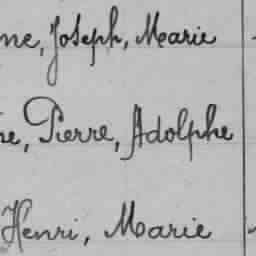 ne, Joseph, Marie
ne, Pierre, Adolphe
Henri, Marie